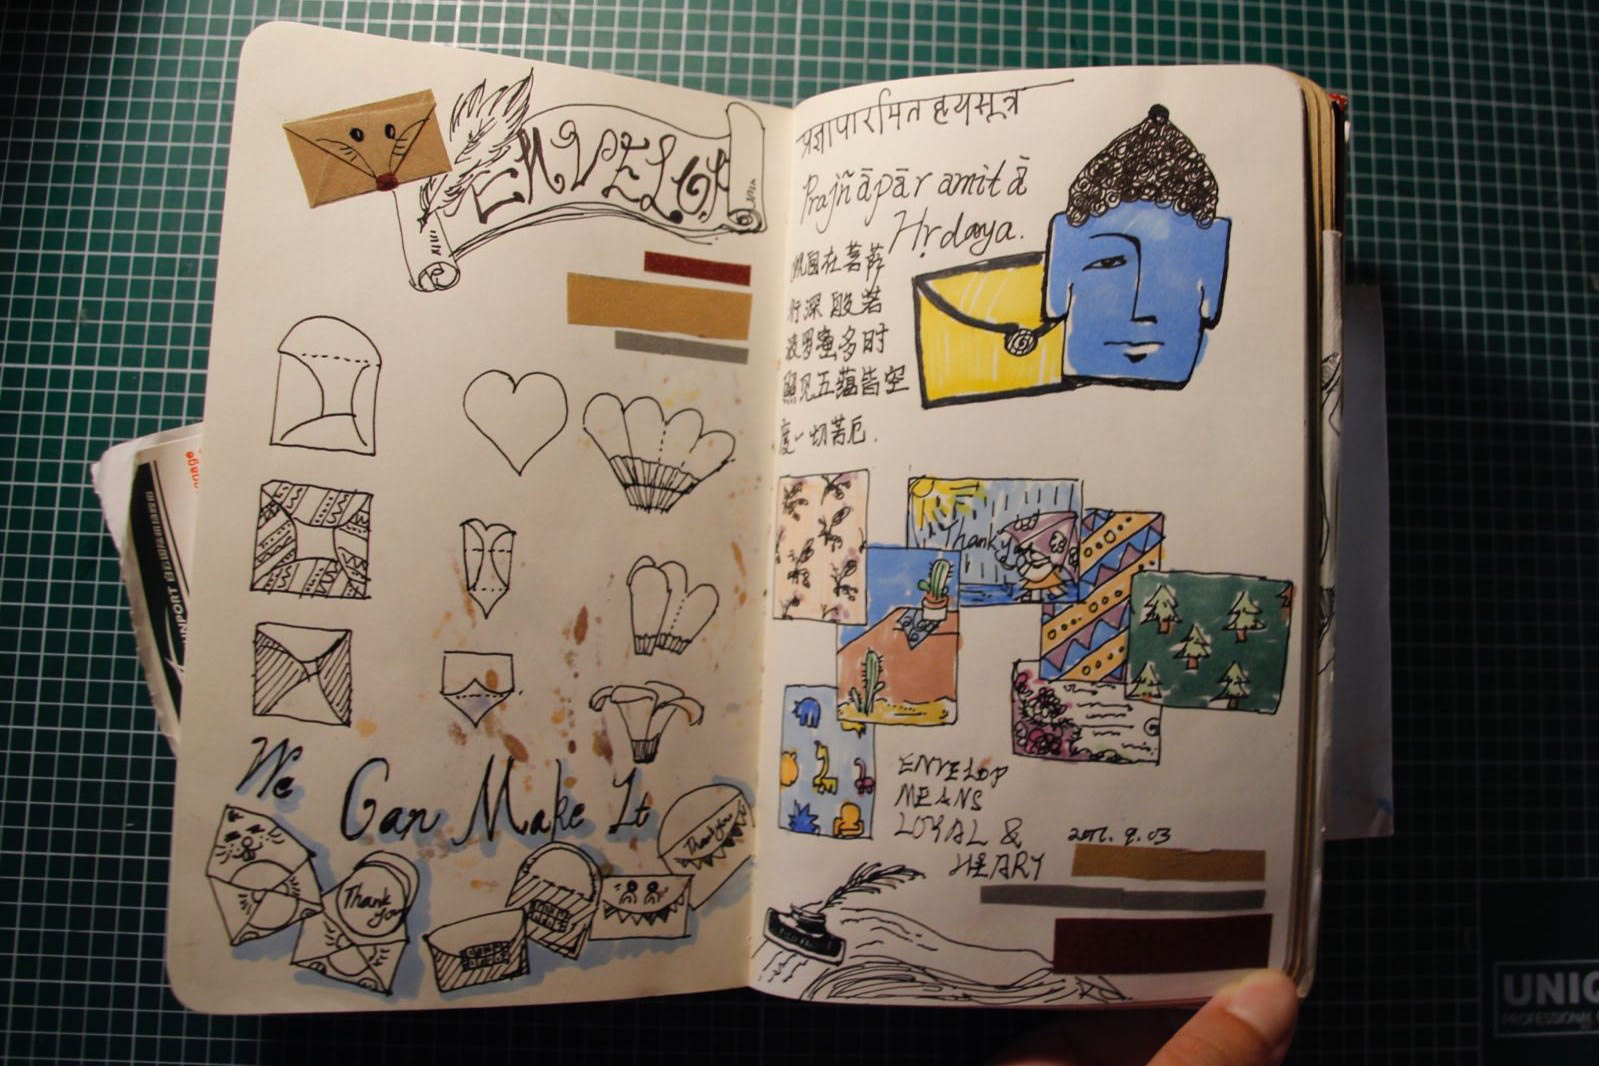 ENVELOP
We Can Make It
Thank you
Thank you
प्रज्ञापारमित हृयसूत्र
Prajñāpāramitā
Hṛdaya.
在菩萨
行深般若
波罗蜜多时
照见五蕴皆空
度一切苦厄.
Thank you
ENVELOP
MEANS
LOYAL &
HEARY
9.03
UNIQ
PROFESSIONAL